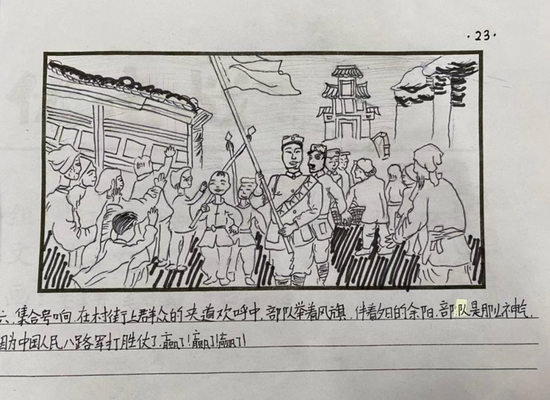 ·23·
六、集合号响,在村街上群众的夹道欢呼中,部队举着风旗,伴着夕日的余阳,部队是那么神气,
因为中国人民八路军打胜仗了,赢了!赢了!赢了!